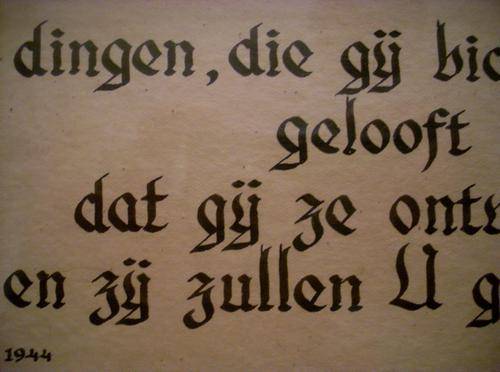 dingen, die gÿ bid
gelooft
dat gÿ ze ontv
en zÿ zullen U g
1944